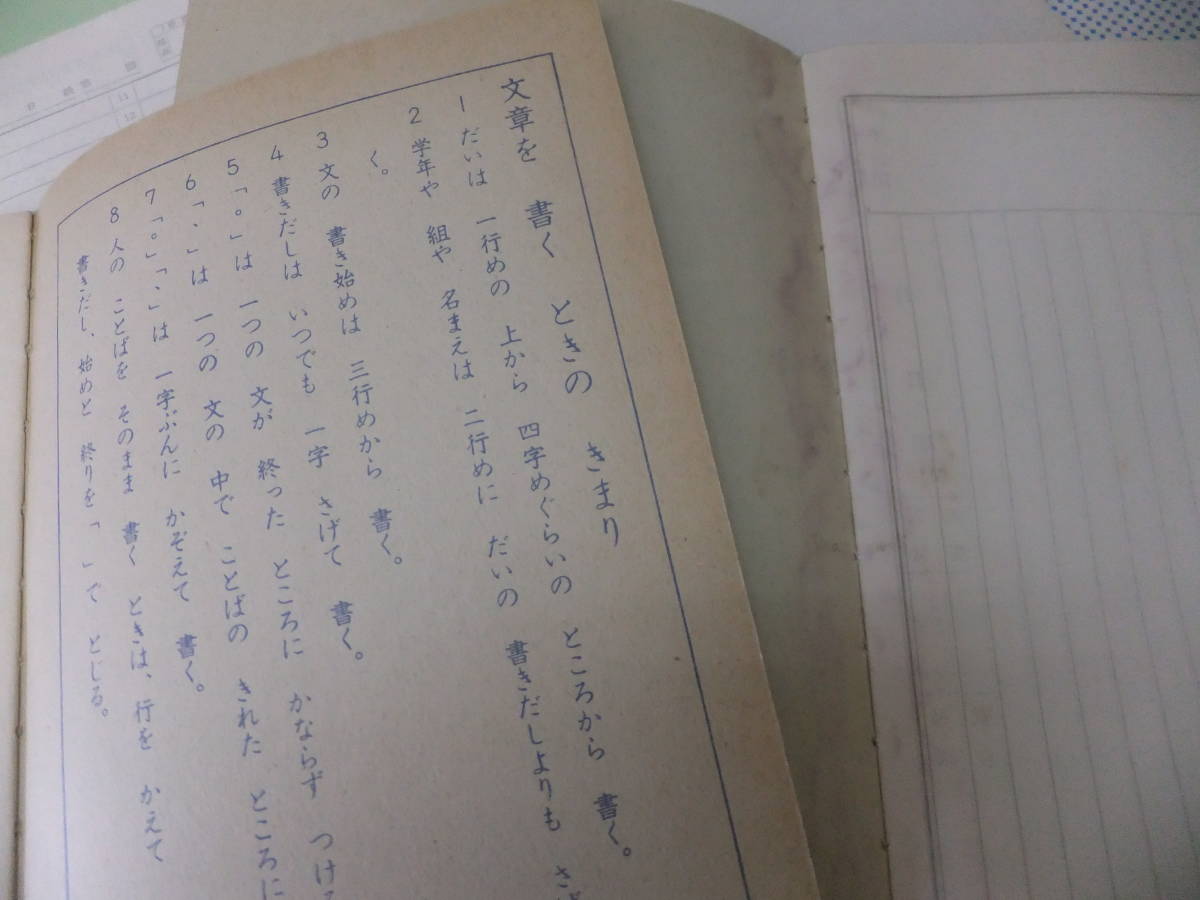 文章を 書く ときの きまり
1 だいは 一行めの 上から 四字めぐらいの ところから 書く。
2 学年や 組や 名まえは 二行めに だいの 書きだしよりも さ
く。
3 文の 書き始めは 三行めから 書く。
4 書きだしは いつでも 一字 さげて 書く。
5 「。」は 一つの 文が 終った ところに かならず つける
6 「、」は 一つの 文の 中で ことばの きれた ところに
7 「。」「、」は 一字ぶんに かぞえて 書く。
8 人の ことばを そのまま 書く ときは、行を かえて
書きだし、始めと 終りを「 」で とじる。
11
12